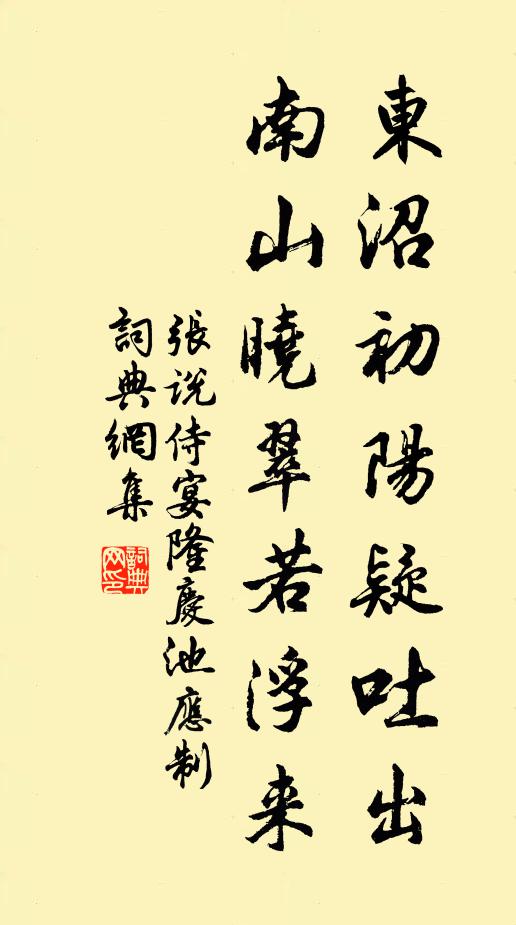 東沼初陽疑吐出
南山曉翠若浮来
張説侍宴隆慶池應制
詞典網集
詞典網印